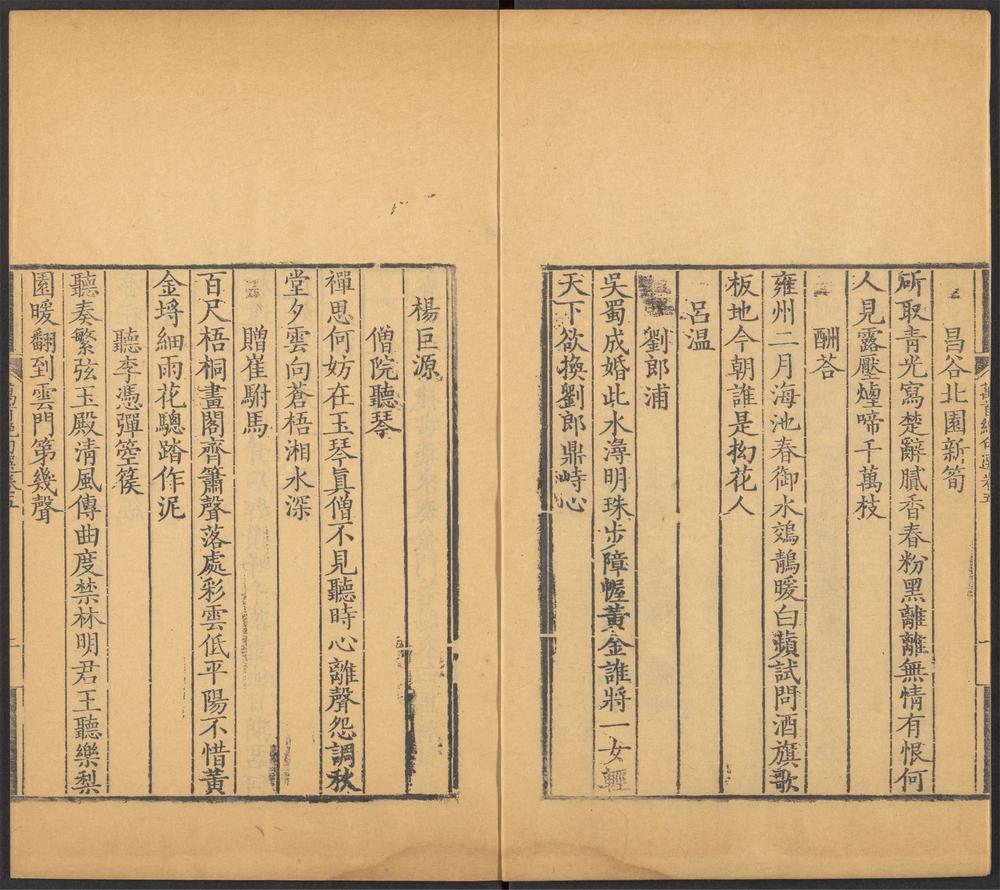 昌谷北園新筍
斫取青光寫楚辭膩香春粉黑離離無情有恨何
人見露壓煙啼千萬枝
酬荅
雍州二月海池春御水鵁鶄暖白蘋試問酒旗歌
板地今朝誰是拗花人
呂温
劉郎浦
吳蜀成婚此水潯明珠步障幄黃金誰將一女輕
天下欲換劉郎鼎峙心
楊巨源
僧院聽琴
禪思何妨在玉琴眞僧不見聽時心離聲怨調秋
堂夕雲向蒼梧湘水深
贈崔駙馬
百尺梧桐畫閣齊簫聲落處彩雲低平陽不惜黃
金埒細雨花驄踏作泥
聽李憑彈箜篌
聽奏繁弦玉殿清風傳曲度禁林明君王聽樂梨
園暖翻到雲門第幾聲